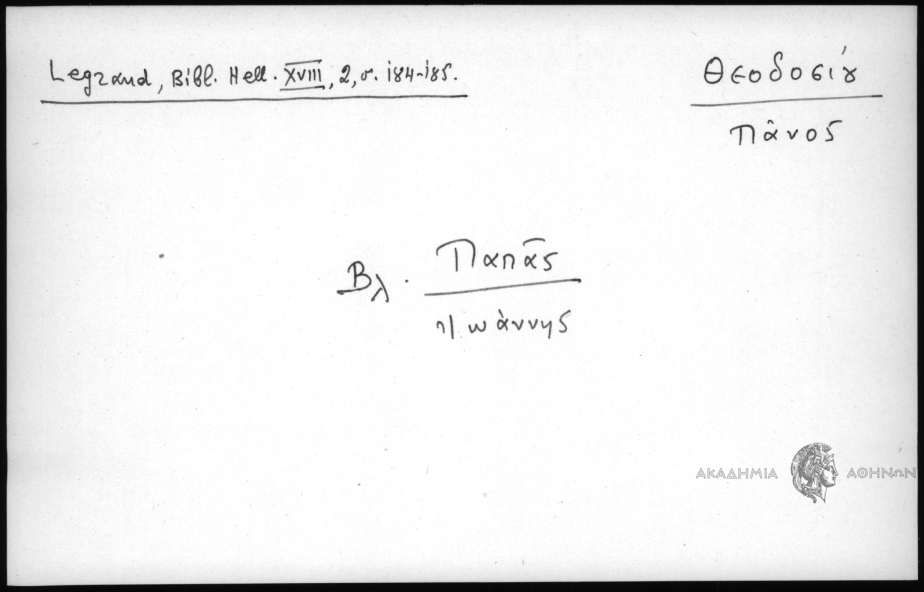 Legrand, Bibl. Hell. XVIII, 2, σ. 184-185.
Θεοδοσίȣ
Πᾶνος
Βλ. Παπᾶς
Ἰωάννης
ΑΚΑΔΗΜΙΑ ΑΘΗΝΩΝ